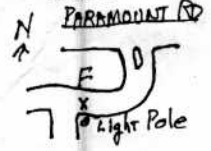 PARAMOUNT RD
N
E
x
Light Pole